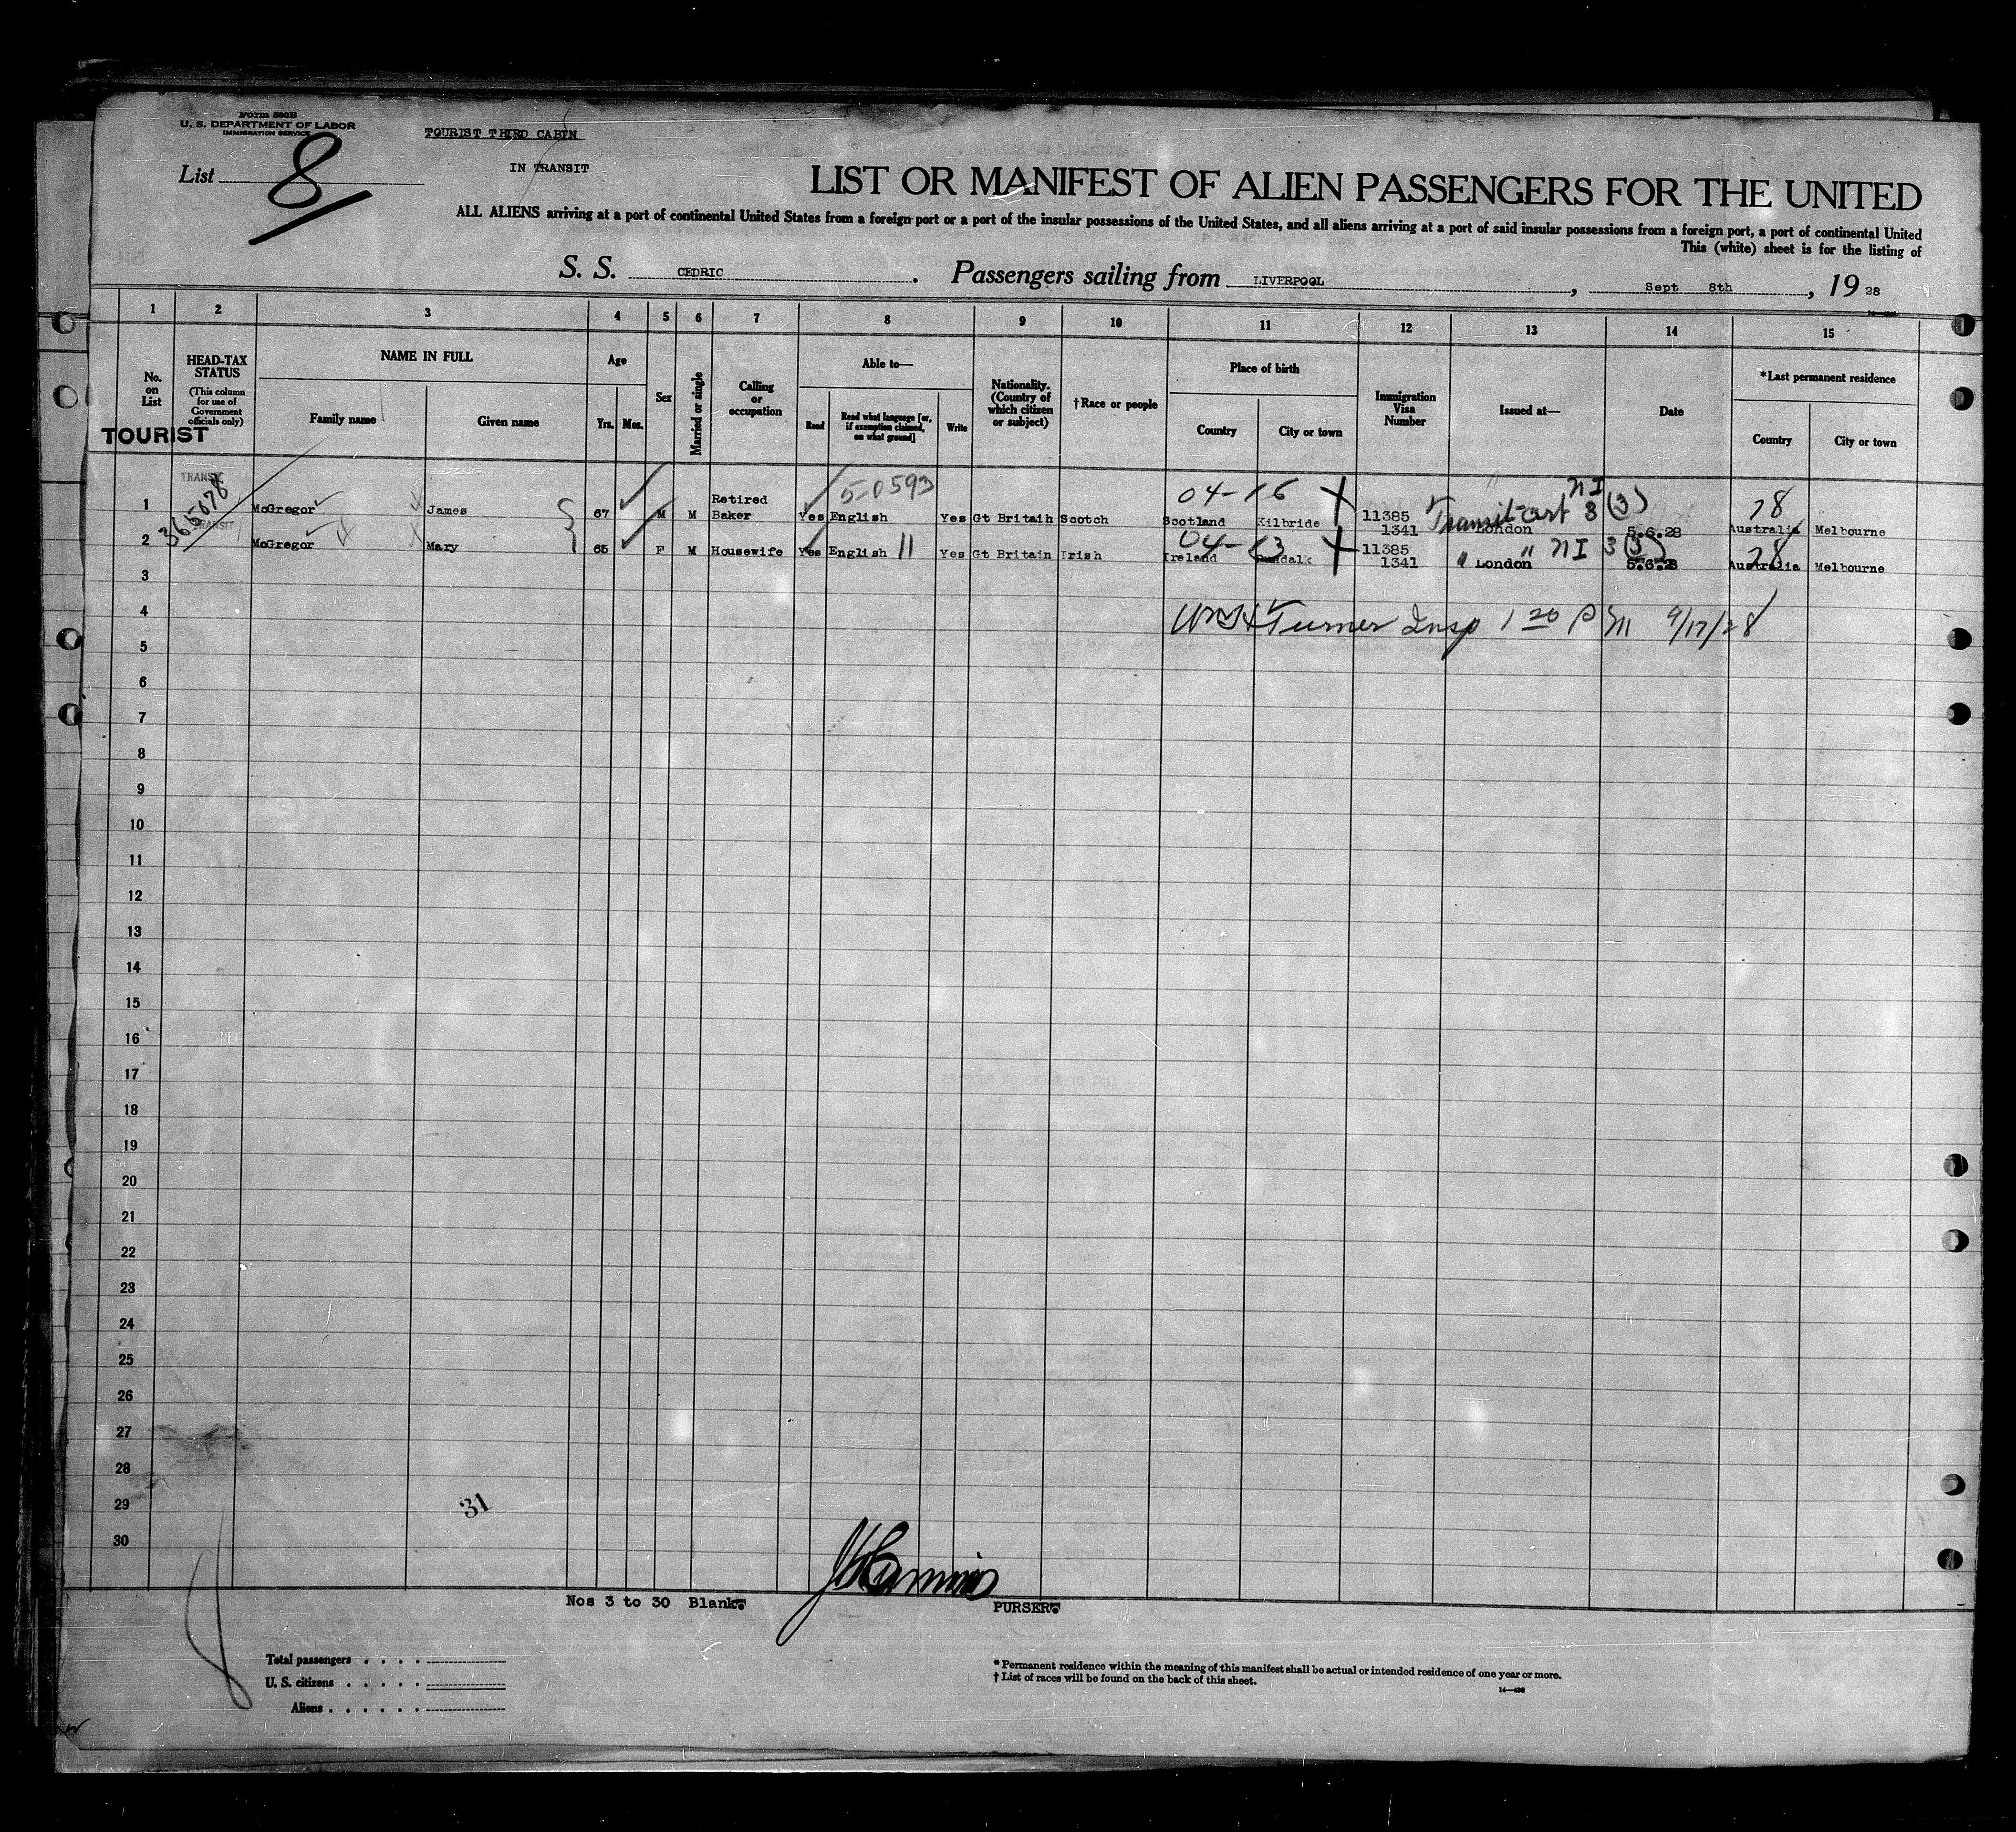 Form 500B
U. S. DEPARTMENT OF LABOR
IMMIGRATION SERVICE
TOURIST THIRD CABIN
IN TRANSIT
List 8
LIST OR MANIFEST OF ALIEN PASSENGERS FOR THE UNITED
ALL ALIENS arriving at a port of continental United States from a foreign port or a port of the insular possessions of the United States, and all aliens arriving at a port of said insular possessions from a foreign port, a port of continental United
This (white) sheet is for the listing of
S. S. CEDRIC. Passengers sailing from LIVERPOOL, Sept 8th, 19 28
1 2 3 4 5 6 7 8 9 10 11 12 13 14 15
No. on List
HEAD-TAX STATUS
(This column for use of Government officials only)
NAME IN FULL
Family name
Given name
Age
Yrs. Mos.
Sex
Married or single
Calling or occupation
Able to—
Read
Read what language [or, if exemption claimed, on what ground]
Write
Nationality. (Country of which citizen or subject)
†Race or people
Place of birth
Country
City or town
Immigration Visa Number
Issued at—
Date
*Last permanent residence
Country
City or town
TOURIST
TRANSIT
365078
5-0593
04-16
NI
28
1 McGregor James 67 M M Retired Baker Yes English Yes Gt Britain Scotch Scotland Kilbride 11385 1341 Transit-Cert 3 (3) London 5.6.28 Australia Melbourne
TRANSIT
04-13
28
2 McGregor Mary 65 F M Housewife Yes English 11 Yes Gt Britain Irish Ireland Dundalk 11385 1341 " " NI 3 (3) London 5.6.28 Australia Melbourne
3
4
Turner Insp 1 20 PM 9/17/28
5
6
7
8
9
10
11
12
13
14
15
16
17
18
19
20
21
22
23
24
25
26
27
28
29
31
30
Nos 3 to 30 Blank.
PURSER.
Total passengers . . . .
U. S. citizens . . . . .
Aliens . . . . . .
* Permanent residence within the meaning of this manifest shall be actual or intended residence of one year or more.
† List of races will be found on the back of this sheet.